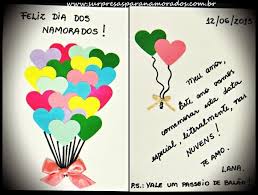 www.surpresasparanamorados.com.br
FELIZ DIA DOS
NAMORADOS!
12/06/2015
Meu amor,
Este ano vamos
comemorar esta data
especial, literalmente, nas
NUVENS!
TE AMO.
LANA.
P.S.: VALE UM PASSEIO DE BALÃO!